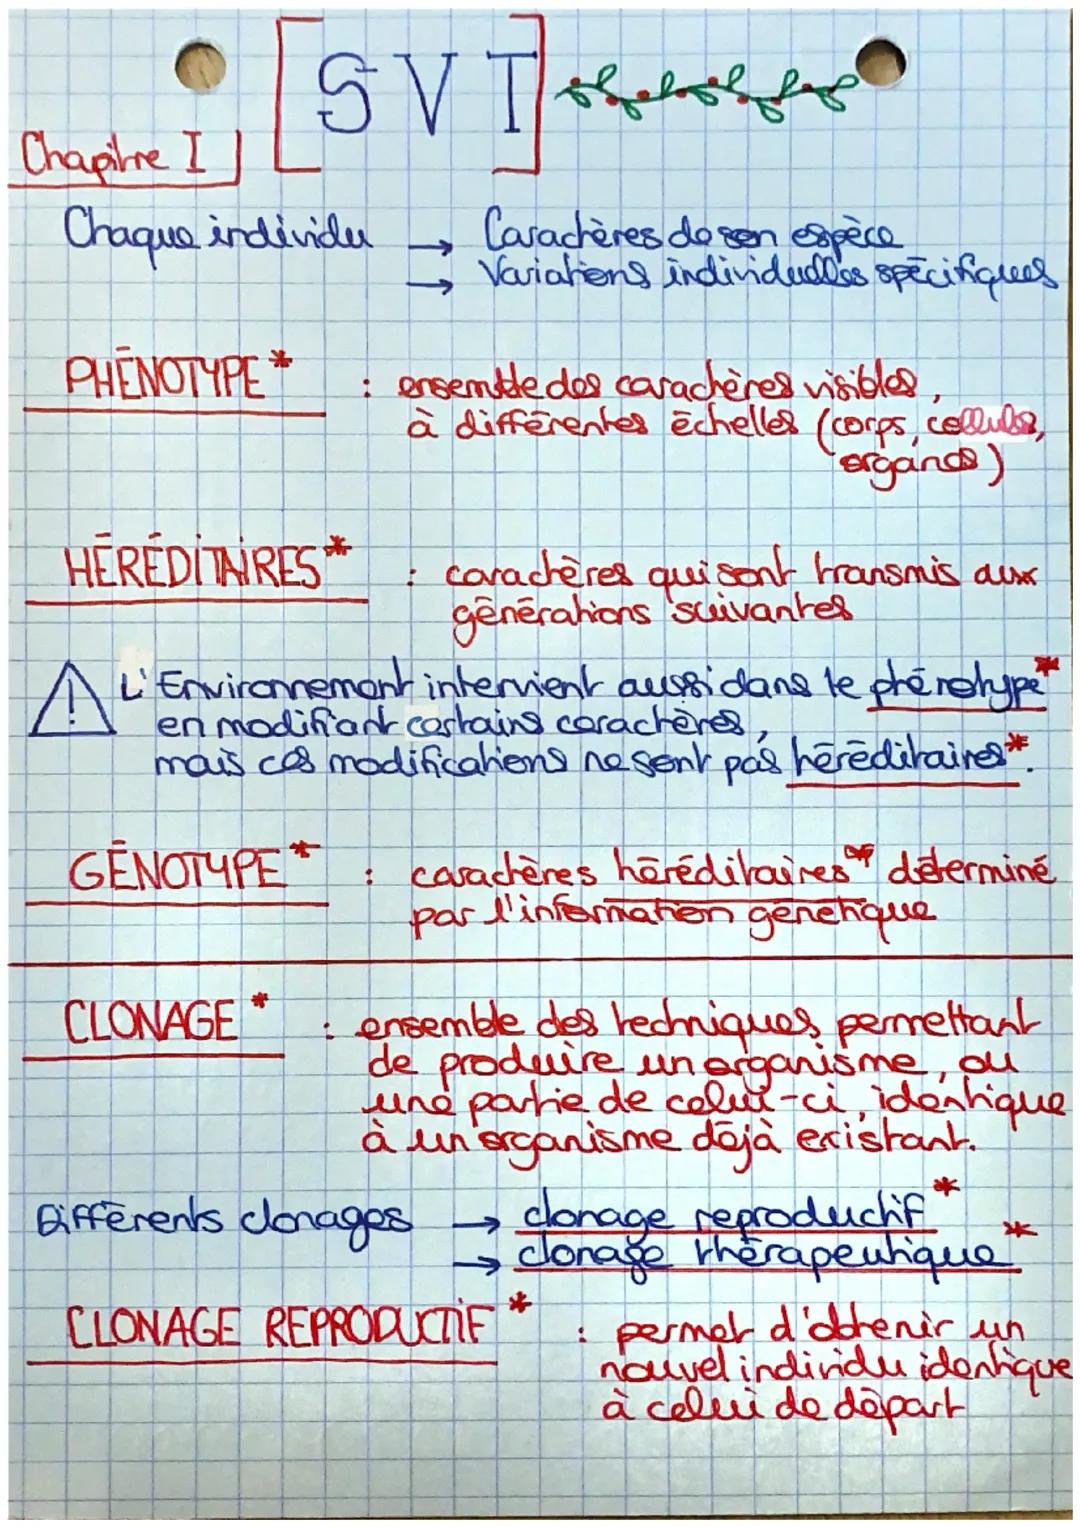 SVT
Chapitre I
Chaque individu → Caractères de son espèce
→ Variations individuelles spécifiques
PHÉNOTYPE* : ensemble des caractères visibles,
à différentes échelles (corps, cellules,
organes)
HÉRÉDITAIRES* : caractères qui sont transmis aux
générations suivantes
⚠ L'Environnement intervient aussi dans le phénotype*
en modifiant certains caractères,
mais ces modifications ne sont pas héréditaires*.
GÉNOTYPE* : caractères héréditaires* déterminé
par l'information génétique
CLONAGE* : ensemble des techniques permettant
de produire un organisme, ou
une partie de celui-ci, identique
à un organisme déjà existant.
Différents clonages → clonage reproductif*
→ clonage thérapeutique*
CLONAGE REPRODUCTIF* : permet d'obtenir un
nouvel individu identique
à celui de départ